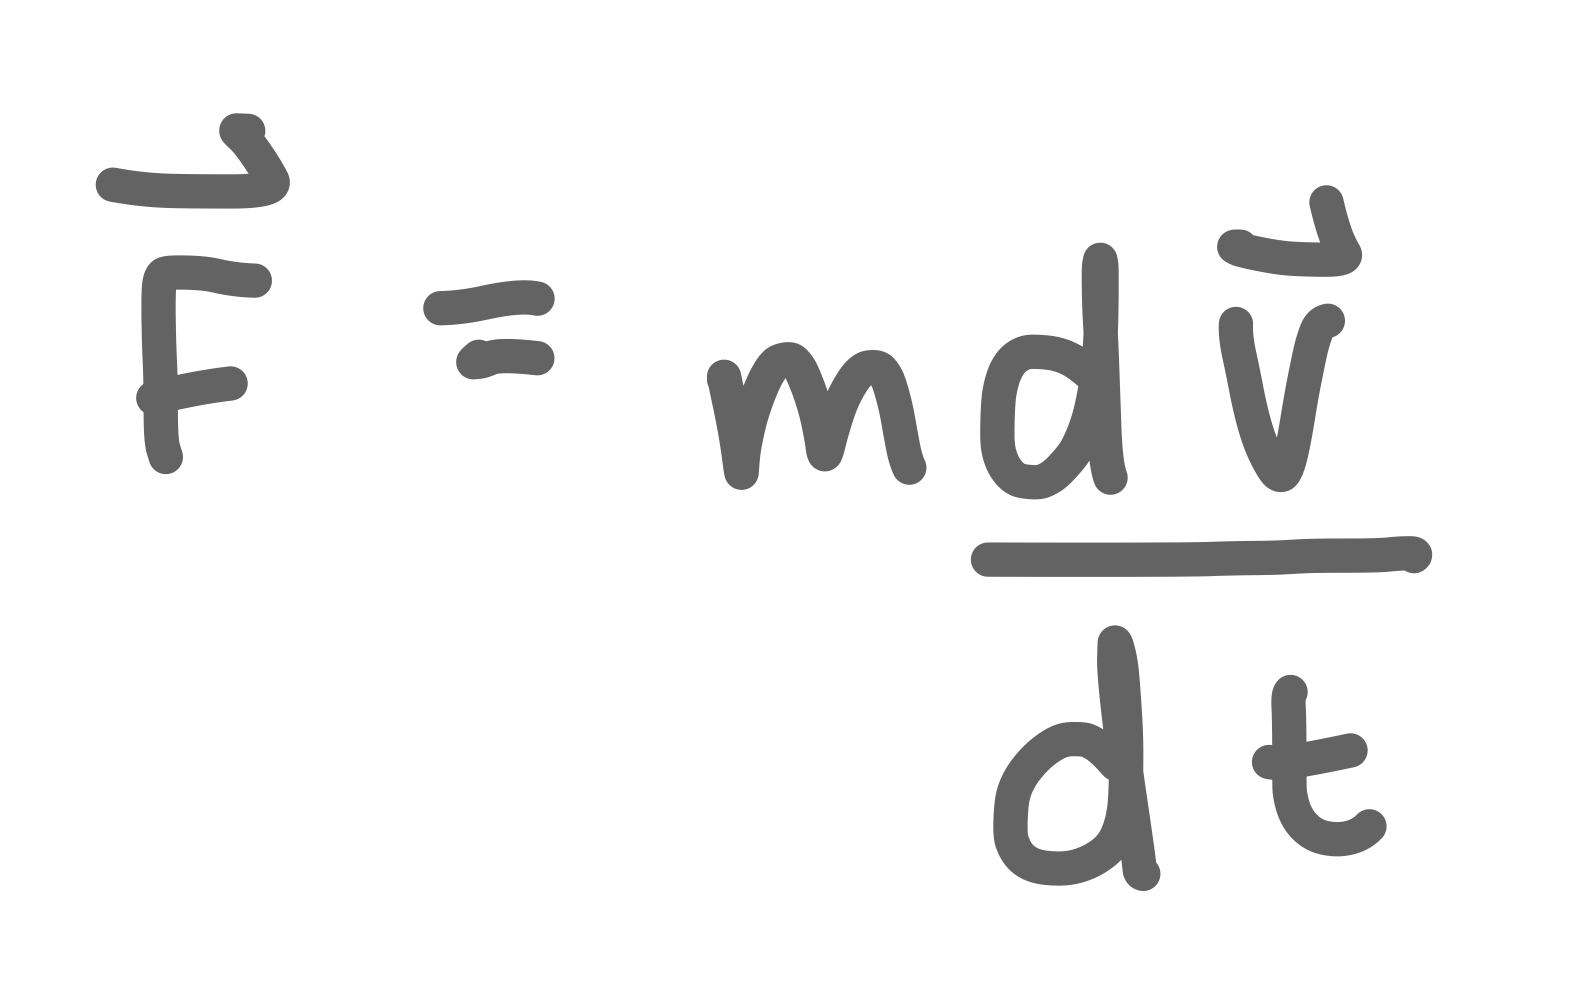 $\vec{F} = m\frac{d\vec{v}}{dt}$